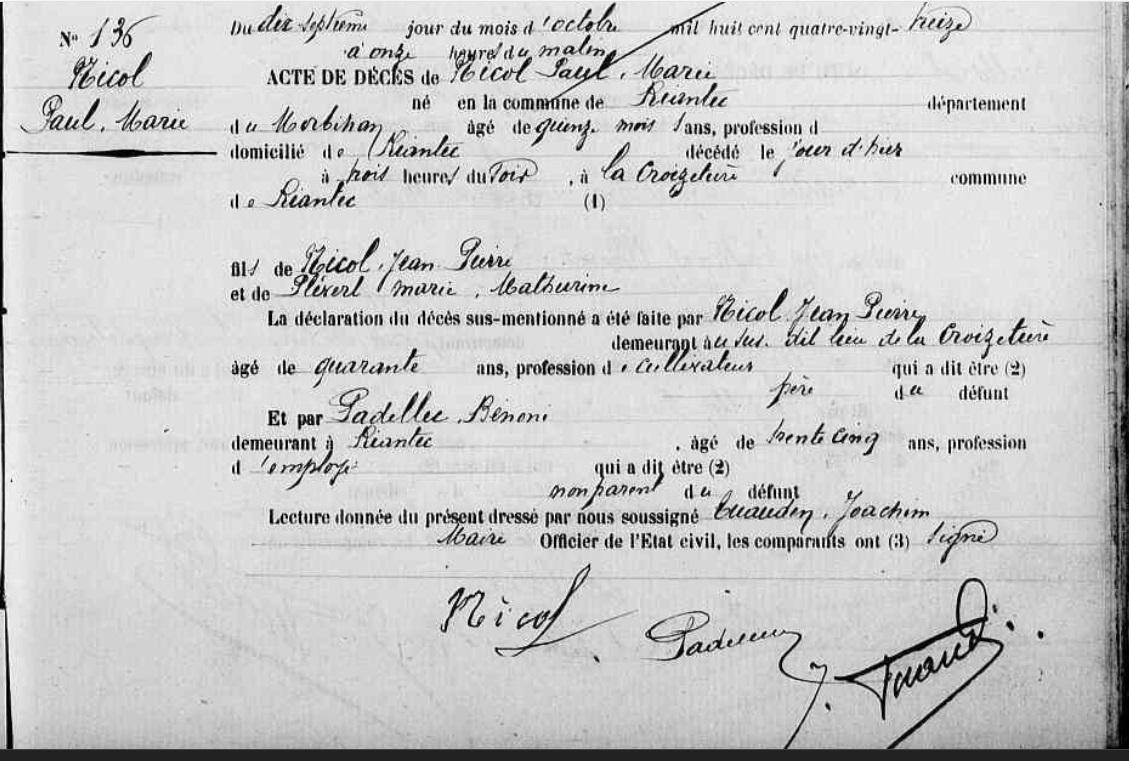 N° 136
Nicol
Paul, Marie
Du dix septième jour du mois d'octobre mil huit cent quatre-vingt-treize
à onze heures du matin
ACTE DE DÉCÈS de Nicol Paul, Marie
né en la commune de Riantec département
du Morbihan âgé de quinze mois ans, profession d
domicilié de Riantec décédé le jour d'hier
à trois heures du soir, à la Croizetière commune
de Riantec (1)
fils de Nicol, Jean Pierre
et de marie, Mathurine
La déclaration du décès sus-mentionné a été faite par Nicol Jean Pierre
demeurant au sus. dit lieu de la Croizetière
âgé de quarante ans, profession de cultivateur qui a dit être (2)
père du défunt
Et par Padellec, Bénoni
demeurant à Riantec, âgé de trente cinq ans, profession
d'employé qui a dit être (2)
non parent du défunt
Lecture donnée du présent dressé par nous soussigné Joachim
Maire Officier de l'Etat civil, les comparants ont (3) signé
Nicol
Padellec